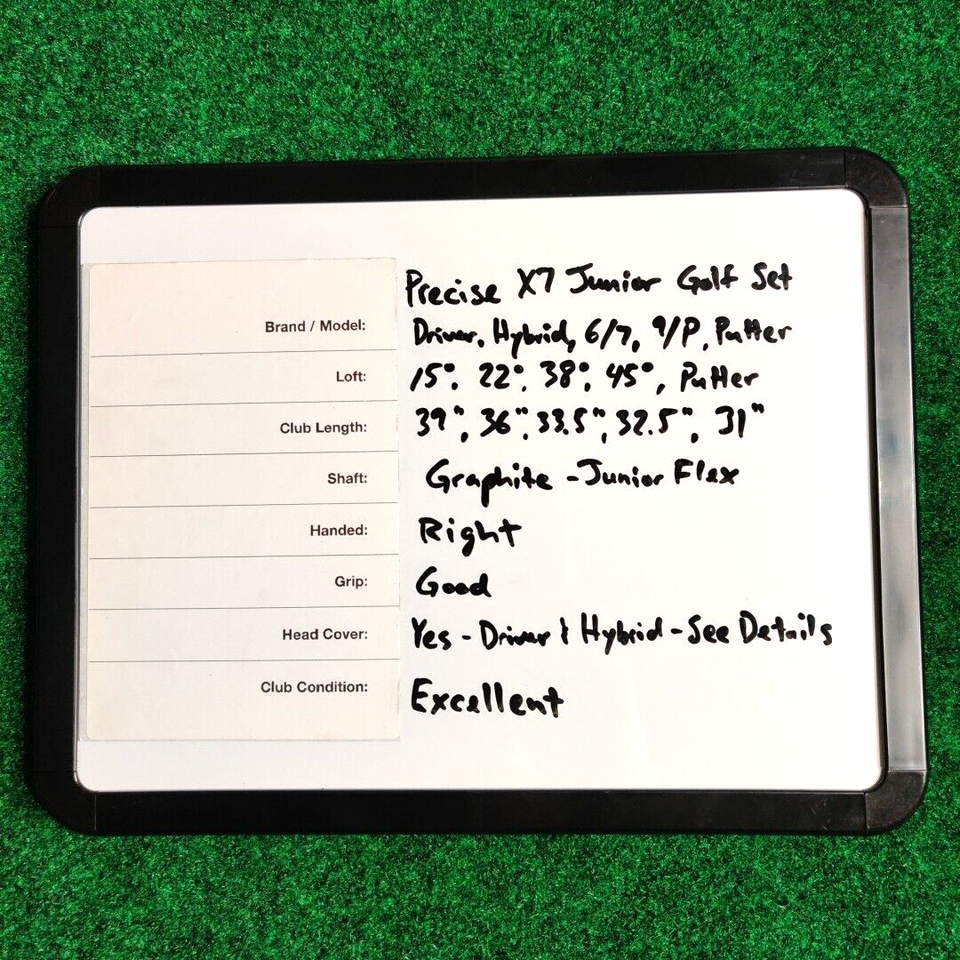 Precise X7 Junior Golf Set
Brand / Model: Driver, Hybrid, 6/7, 9/P, Putter
Loft: 15°, 22°, 38°, 45°, Putter
Club Length: 39", 36", 33.5", 32.5", 31"
Shaft: Graphite - Junior Flex
Handed: Right
Grip: Good
Head Cover: Yes - Driver & Hybrid - See Details
Club Condition: Excellent